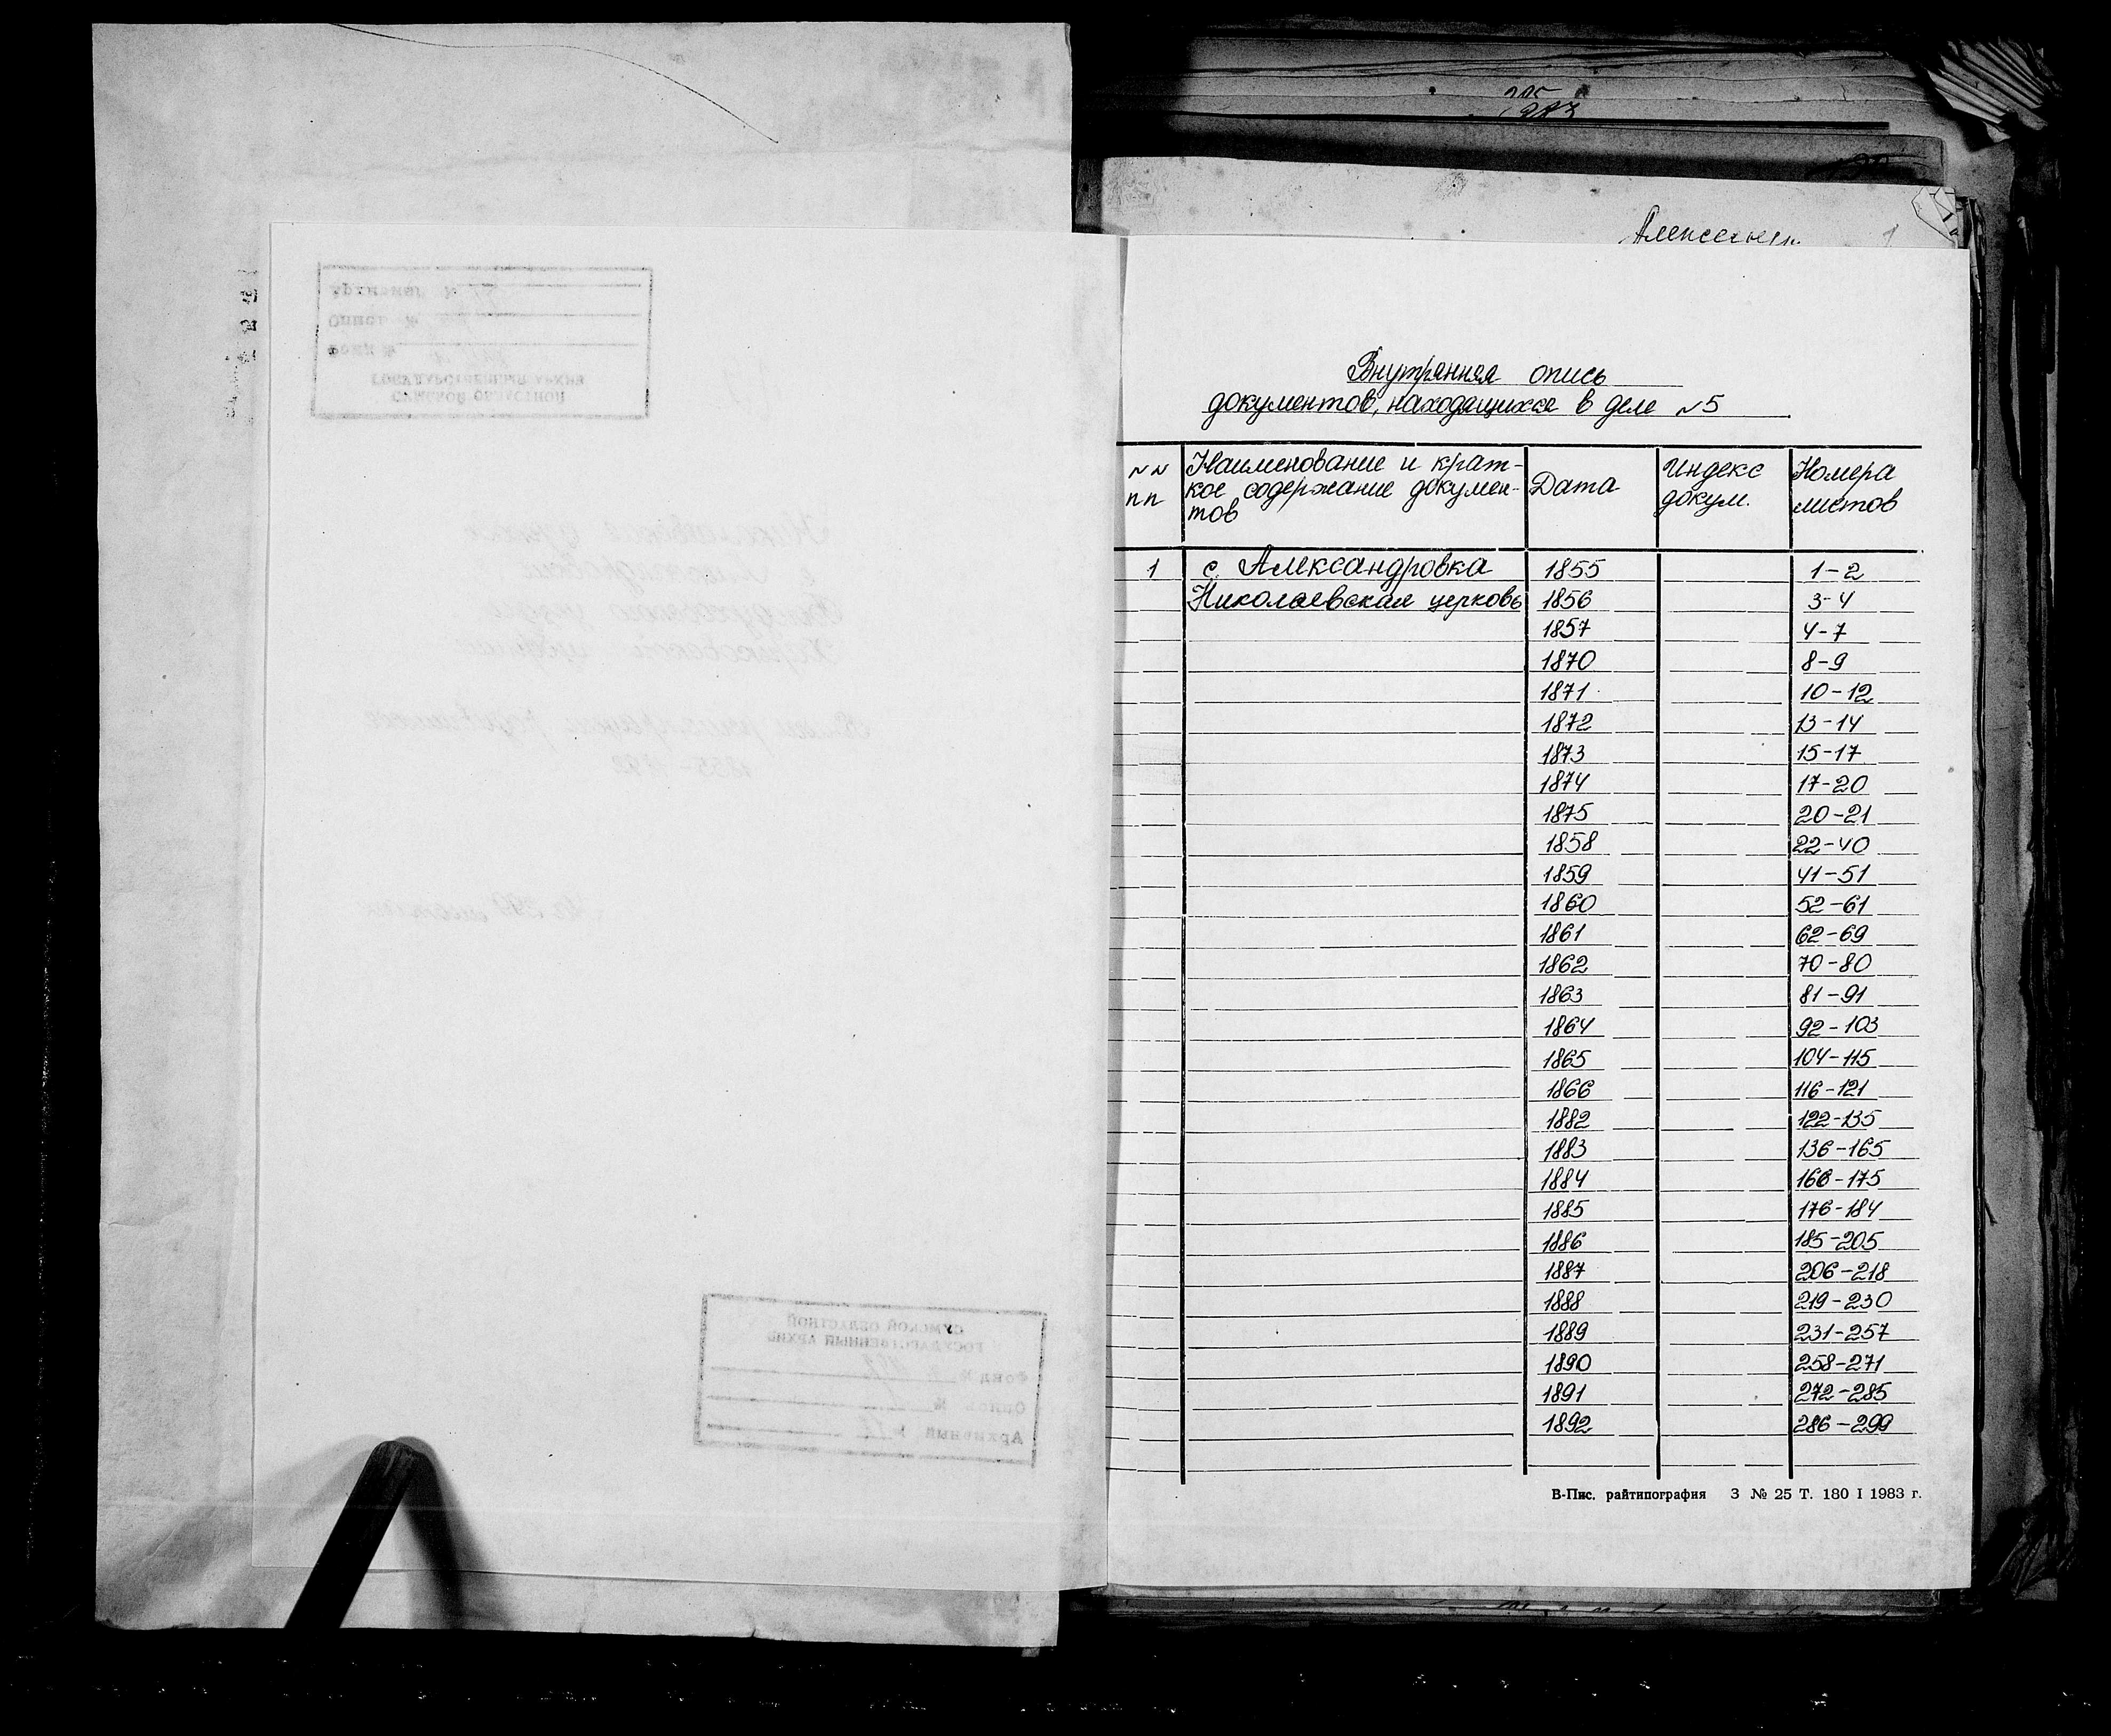 Алексеевск.
1
Внутрянняя опись
документов, находящихся в деле № 5
№№ пп
Наименование и краткое содержание документов
Дата
Индекс докум.
Номера листов
1 с. Александровка 1855 1-2
Николаевская церковь 1856 3-4
1857 4-7
1870 8-9
1871 10-12
1872 13-14
1873 15-17
1874 17-20
1875 20-21
1858 22-40
1859 41-51
1860 52-61
1861 62-69
1862 70-80
1863 81-91
1864 92-103
1865 104-115
1866 116-121
1882 122-135
1883 136-165
1884 166-175
1885 176-184
1886 185-205
1887 206-218
1888 219-230
1889 231-257
1890 258-271
1891 272-285
1892 286-299
В-Пис. райтипография З № 25 Т. 180 I 1983 г.
СУМСКОЙ ОБЛАСТНОЙ
ГОСУДАРСТВЕННЫЙ АРХИВ
Фонд №
Опись №
Архивный №
СУМСКОЙ ОБЛАСТНОЙ
ГОСУДАРСТВЕННЫЙ АРХИВ
Фонд №
Опись №
Архивный №